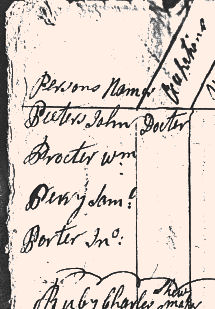 Persons Names
Peeters John Docter
Procter Wm
Perry Saml:
Porter Jno:
Ruby Charles Shoe maker